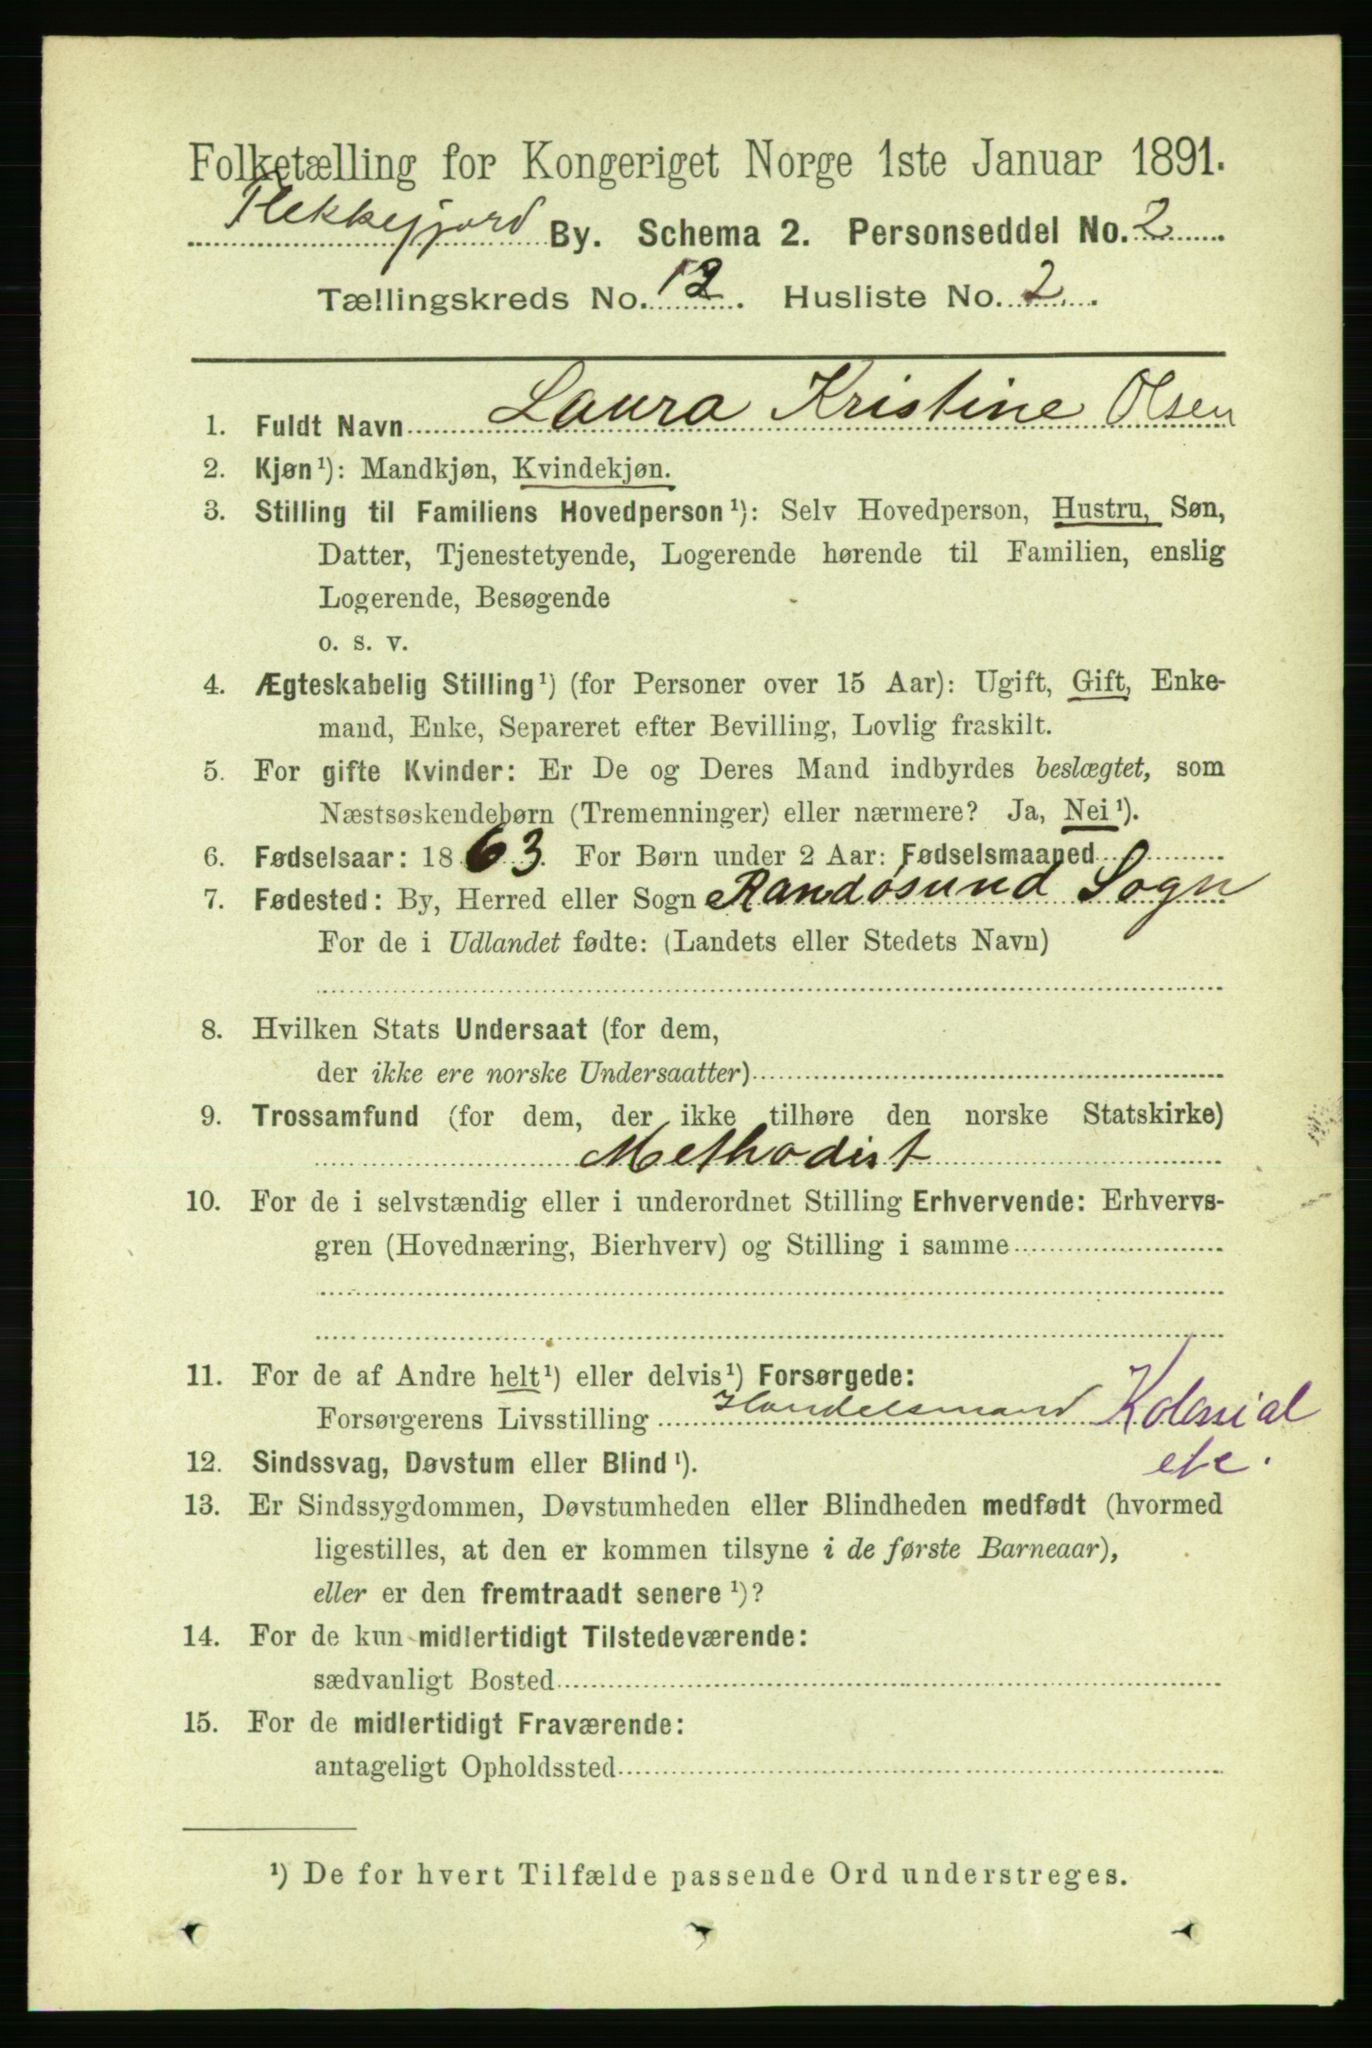 Folketælling for Kongeriget Norge 1ste Januar 1891.
Flekkefjord By. Schema 2. Personseddel No. 2
Tællingskreds No. 12. Husliste No. 2.
1. Fuldt Navn Laura Kristine Olsen
2. Kjøn¹): Mandkjøn, Kvindekjøn.
3. Stilling til Familiens Hovedperson¹): Selv Hovedperson, Hustru, Søn,
Datter, Tjenestetyende, Logerende hørende til Familien, enslig
Logerende, Besøgende
o. s. v.
4. Ægteskabelig Stilling¹) (for Personer over 15 Aar): Ugift, Gift, Enke-
mand, Enke, Separeret efter Bevilling, Lovlig fraskilt.
5. For gifte Kvinder: Er De og Deres Mand indbyrdes beslægtet, som
Næstsøskendebørn (Tremenninger) eller nærmere? Ja, Nei¹).
6. Fødselsaar: 1863. For Børn under 2 Aar: Fødselsmaaned
7. Fødested: By, Herred eller Sogn Randøsund Sogn
For de i Udlandet fødte: (Landets eller Stedets Navn)
8. Hvilken Stats Undersaat (for dem,
der ikke ere norske Undersaatter)
9. Trossamfund (for dem, der ikke tilhøre den norske Statskirke)
Methodist
10. For de i selvstændig eller i underordnet Stilling Erhvervende: Erhvervs-
gren (Hovednæring, Bierhverv) og Stilling i samme
11. For de af Andre helt¹) eller delvis¹) Forsørgede:
Forsørgerens Livsstilling Handelsmand Kolonial
etc.
12. Sindssvag, Døvstum eller Blind¹).
13. Er Sindssygdommen, Døvstumheden eller Blindheden medfødt (hvormed
ligestilles, at den er kommen tilsyne i de første Barneaar),
eller er den fremtraadt senere¹)?
14. For de kun midlertidigt Tilstedeværende:
sædvanligt Bosted
15. For de midlertidigt Fraværende:
antageligt Opholdssted
¹) De for hvert Tilfælde passende Ord understreges.